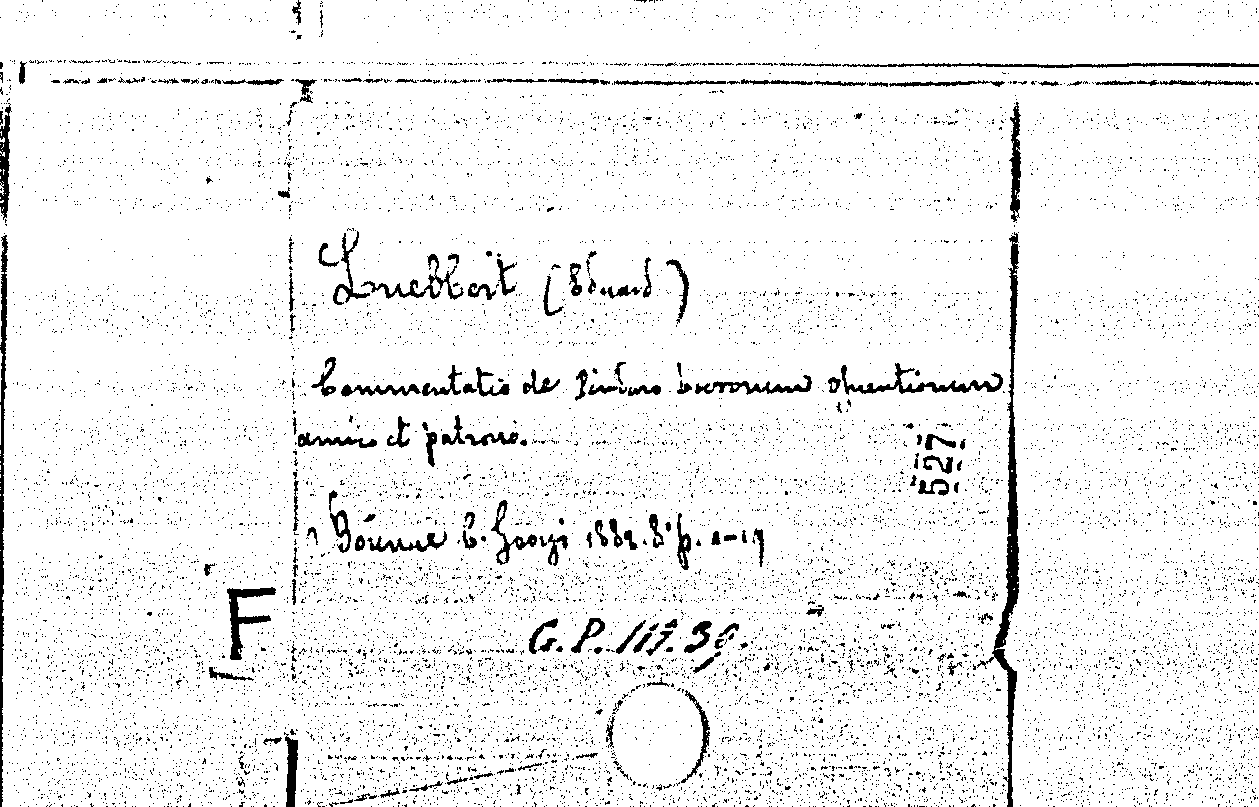 Luebbert (Eduard)
Commentatio de Pindaro locrorum opuntiorum
amico et patrono.
527
Bonnae C. Georgi 1882. 8° p. 1-19
F
G. P. 117. 39.